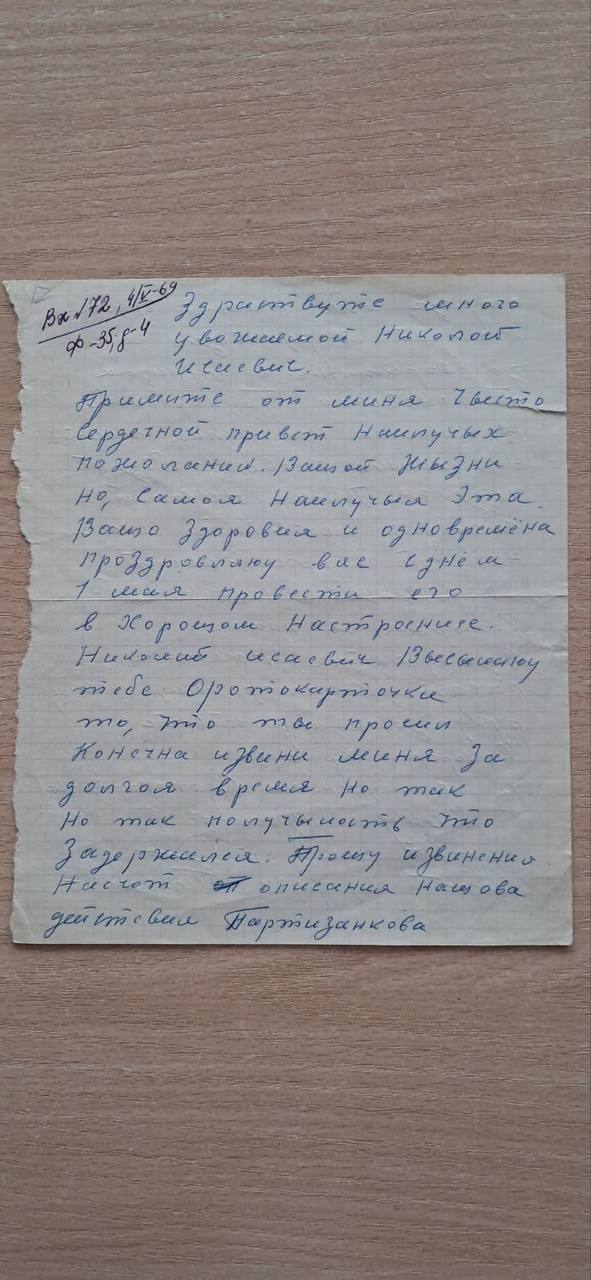 Вх №72, 4/V-69
Ф-35, д-4
Здраствуте много
уважаемой Николой
Исаевич.
Примите от миня Чисто
Сердечной привет Наилучых
пожолании. Вашой Жызни
Но, Самоя Наилучыя Эта
Вашо Здоровия и одновремёна
проздровляю вас с днём
1 мая провести его
в Хорошом Настроение.
Николай исаевич Высылаю
тебе Фотокарточки
то, что ты просил
Конечна извини миня За
долгоя время Но так
Но так получылость что
Задержался. Прошу извинения
Насчот описания Нашова
действия Партизанкова